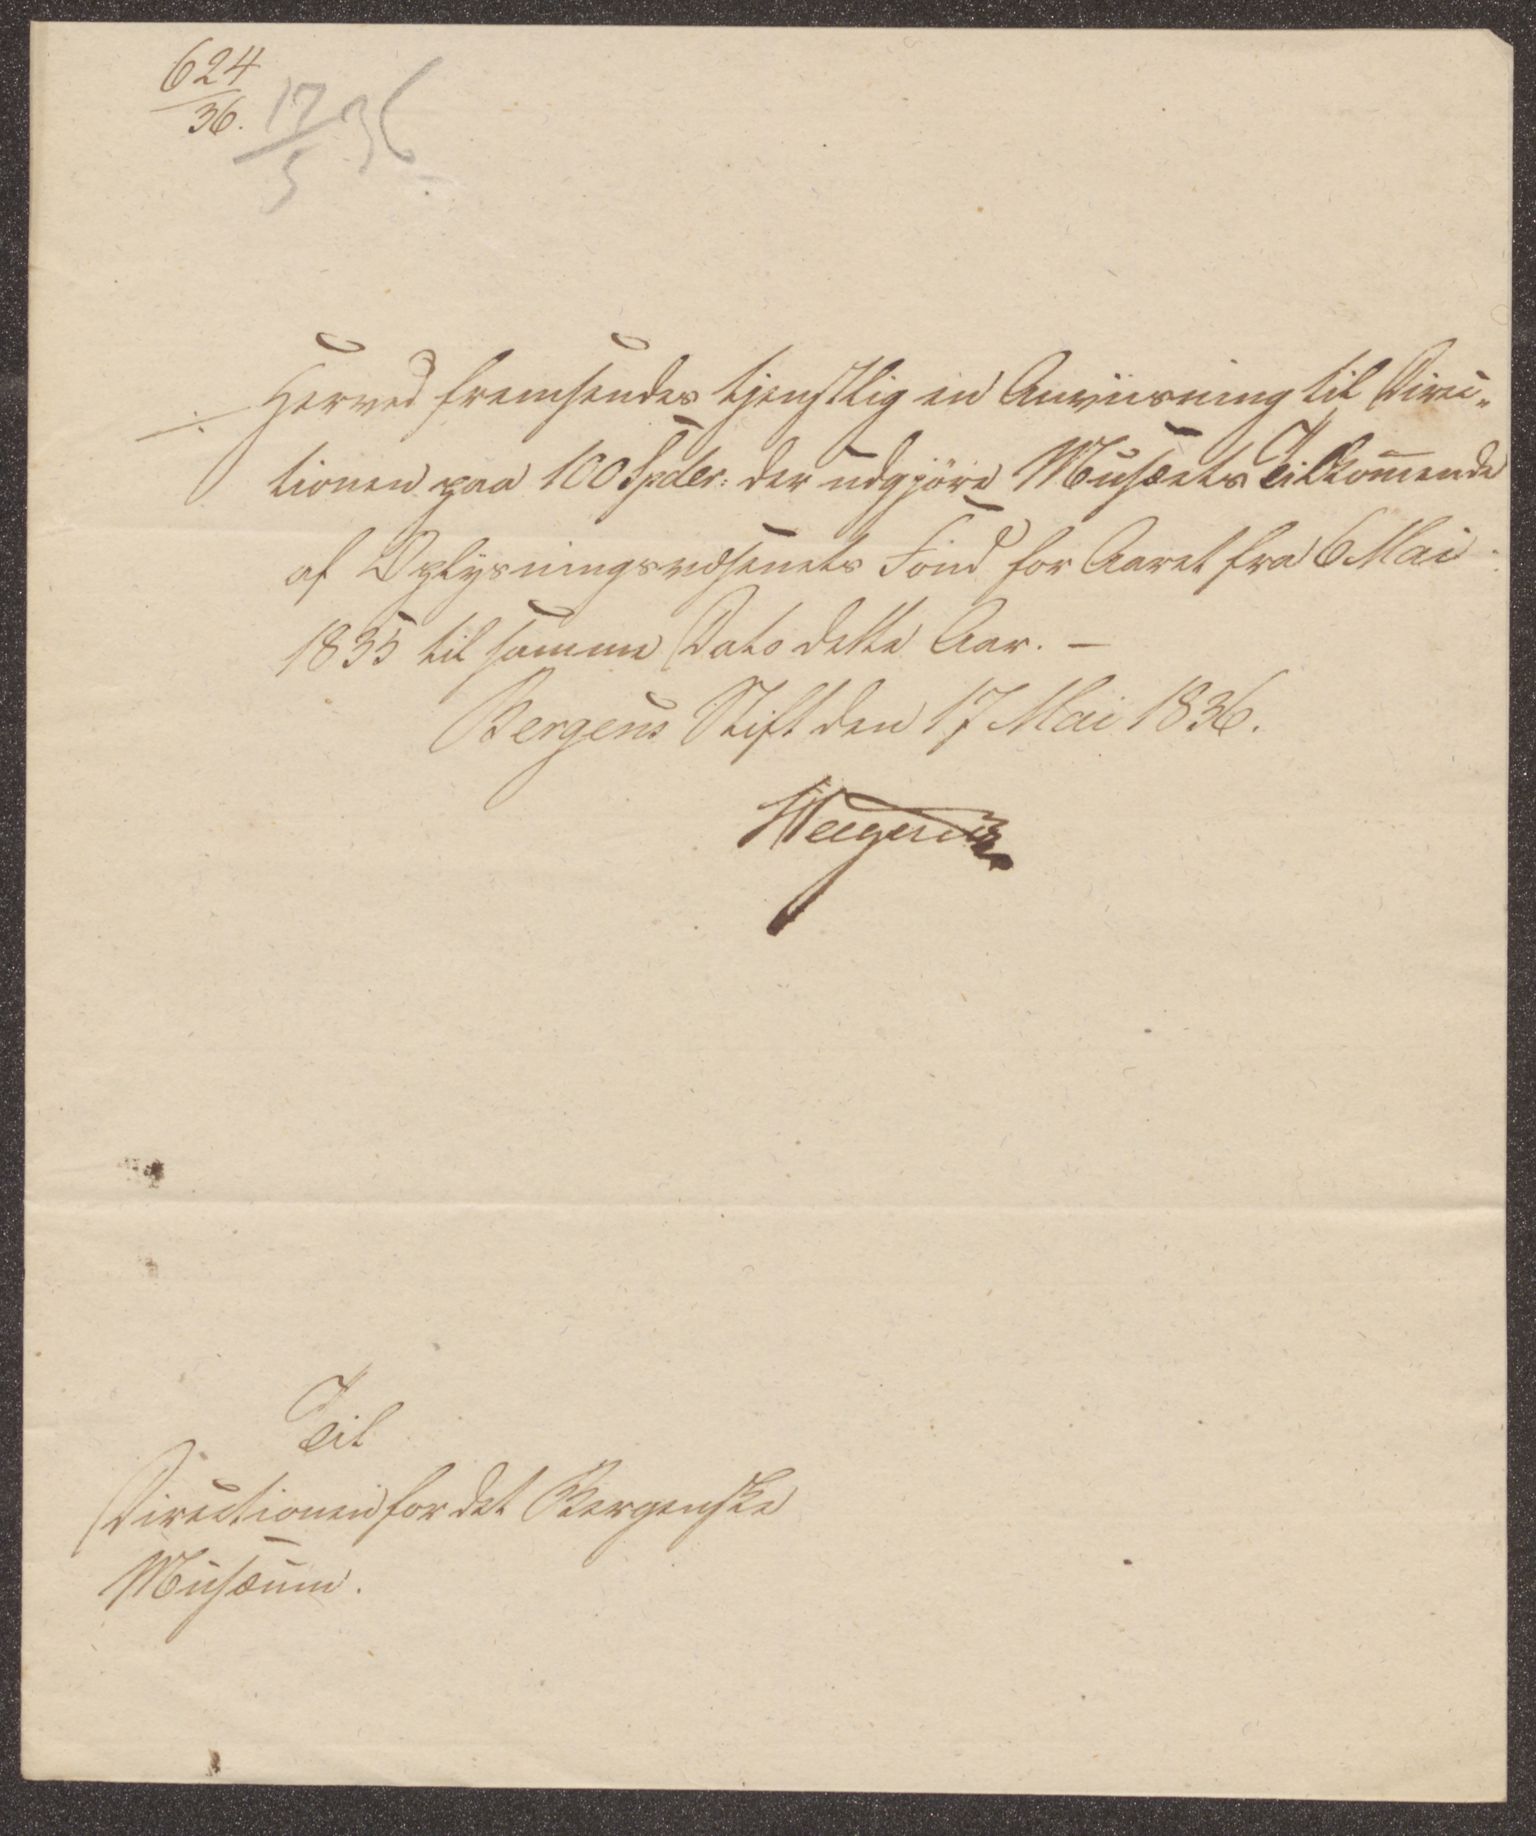 624
36.
17
5 36
Herved fremsendes tjenstlig en Anviisning til Direc„
tionen paa 100 Spdlr: der udgjöre Musæets Tilkommende
af Oplysningsvæsenets Fond for Aaret fra 6 Mai
1835 til samme Dato dette Aar. —
Bergens Stift den 17 Mai 1836.
Til
Directionen for det Bergenske
Musæum.